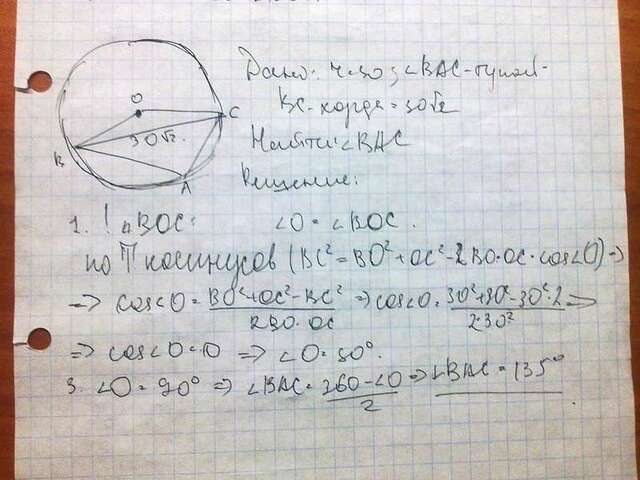 O
C
B
30√2.
A
Дано: r=30; ∠BAC - тупой.
BC - хорда = 30√2
Найти: ∠BAC
Решение:
1. ! △BOC: ∠O = ∠BOC.
по T косинусов (BC² = BO² + OC² - 2BO·OC·cos∠O) =>
=> cos∠O = BO²+OC²-BC² / 2BO·OC => cos∠O = 30²+30²-30²·2 / 2·30² =>
=> cos∠O = 0 => ∠O = 90°.
3. ∠O = 90° => ∠BAC = 360-∠O / 2 => ∠BAC = 135°